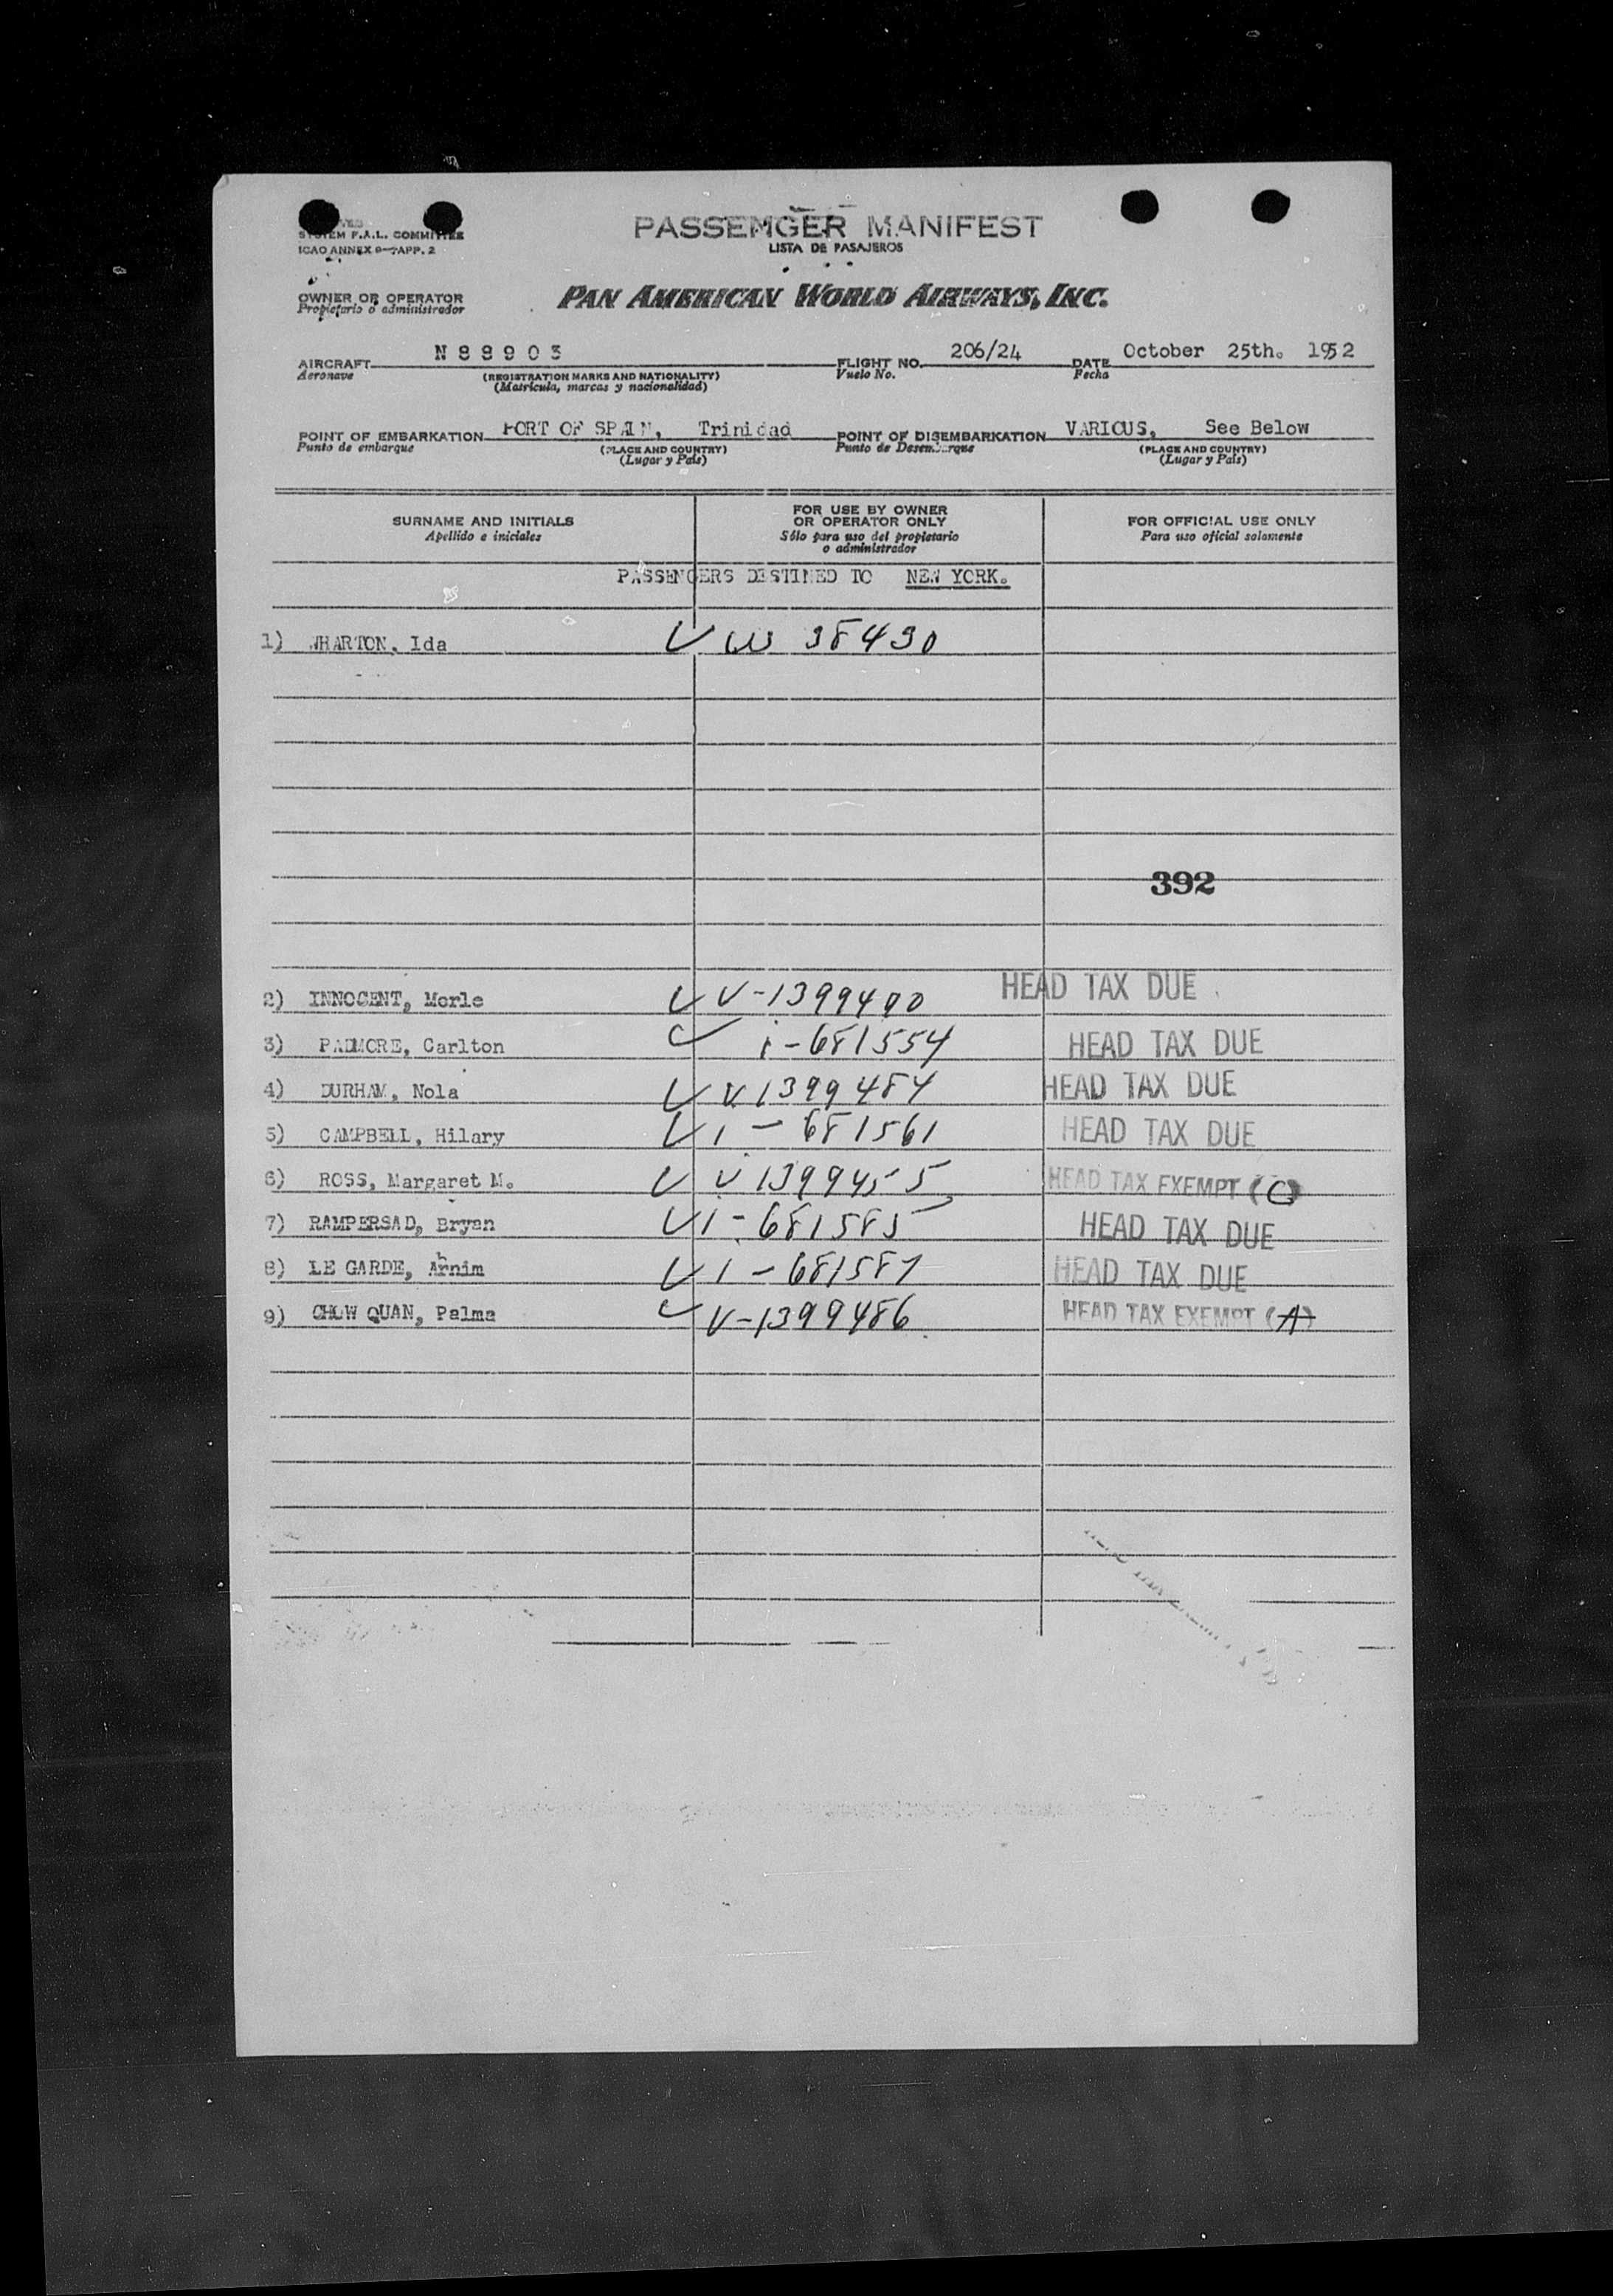 PASSENGER MANIFEST
LISTA DE PASAJEROS
SYSTEM F.A.L. COMMITTEE
ICAO ANNEX 9—APP. 2
OWNER OR OPERATOR
Propietario o administrador
PAN AMERICAN WORLD AIRWAYS, INC.
AIRCRAFT N 88903 FLIGHT NO. 206/24 DATE October 25th. 1952
Aeronave (REGISTRATION MARKS AND NATIONALITY) Vuelo No. Fecha
(Matrícula, marcas y nacionalidad)
POINT OF EMBARKATION PORT OF SPAIN, Trinidad POINT OF DISEMBARKATION VARIOUS, See Below
Punto de embarque (PLACE AND COUNTRY) Punto de Desembarque (PLACE AND COUNTRY)
(Lugar y País) (Lugar y País)
SURNAME AND INITIALS
Apellido e iniciales
FOR USE BY OWNER
OR OPERATOR ONLY
Sólo para uso del propietario
o administrador
FOR OFFICIAL USE ONLY
Para uso oficial solamente
PASSENGERS DESTINED TO NEW YORK.
1) WHARTON, Ida W 38430
392
2) INNOCENT, Merle V-1399490 HEAD TAX DUE
3) PADMORE, Carlton i-681554 HEAD TAX DUE
4) DURHAM, Nola V 1399484 HEAD TAX DUE
5) CAMPBELL, Hilary I-681561 HEAD TAX DUE
6) ROSS, Margaret M. V 1399455 HEAD TAX EXEMPT (C)
7) RAMPERSAD, Bryan I-681585 HEAD TAX DUE
8) LE GARDE, Ahnim I-681587 HEAD TAX DUE
9) CHOW QUAN, Palma V-1399486 HEAD TAX EXEMPT (A)